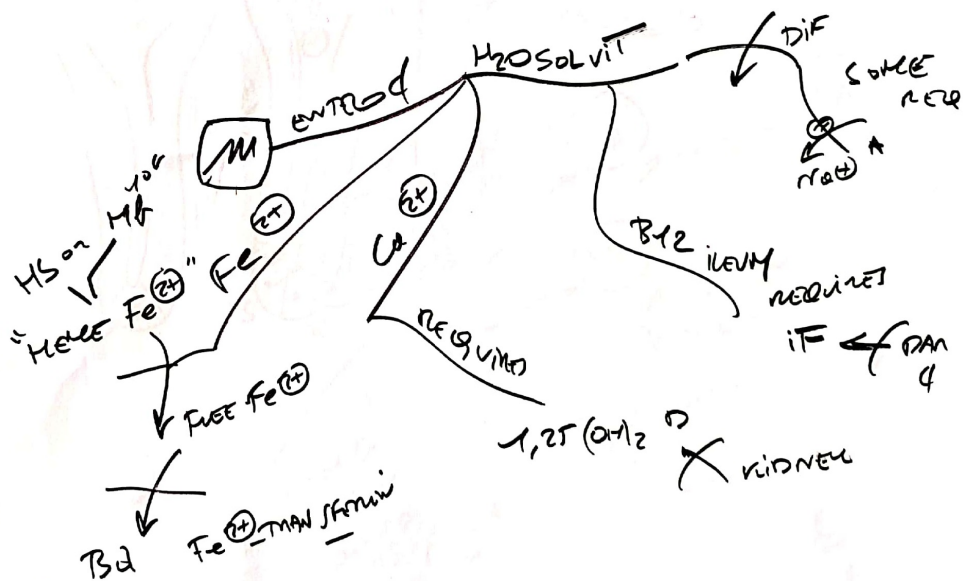 H2O SOLVIT
DIF
SOME
REQ
Na⊕ A
ENTERO ¢
M
Fe 2+
Ca 2+
HB or Mb
"HEME Fe 2+"
FREE Fe 2+
Bd
Fe 2+-TRANSFERRIN
REQUIRES
1,25 (OH)2 D
KIDNEY
B12
ILEUM
REQUIRES
iF
PAR
¢